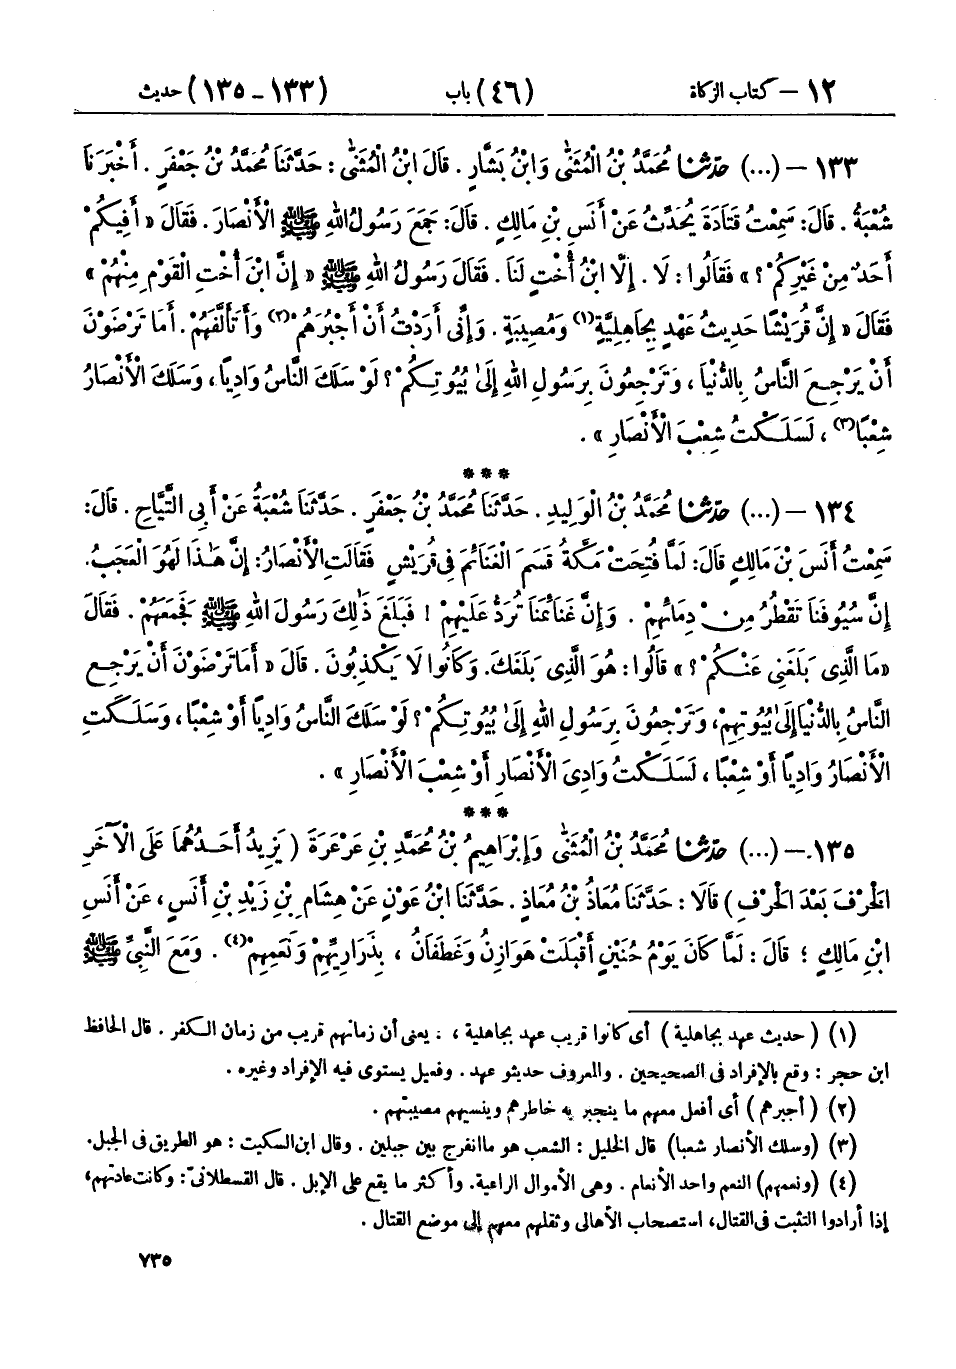 ١٢ – كتاب الزكاة (٤٦) باب (١٣٣ - ١٣٥) حديث
١٣٣ – (...) حَدَّثَنَا مُحَمَّدُ بْنُ الْمُثَنَّىٰ وَابْنُ بَشَّارٍ . قَالَ ابْنُ الْمُثَنَّىٰ : حَدَّثَنَا مُحَمَّدُ بْنُ جَعْفَرٍ . أَخْبَرَنَا
شُعْبَةُ . قَالَ: سَمِعْتُ قَتَادَةَ يُحَدِّثُ عَنْ أَنَسِ بْنِ مَالِكٍ . قَالَ: جَمَعَ رَسُولُ اللهِ ﷺ الْأَنْصَارَ . فَقَالَ « أَفِيكُمْ
أَحَدٌ مِنْ غَيْرِكُمْ ؟ » فَقَالُوا : لَا . إِلَّا ابْنُ أُخْتٍ لَنَا . فَقَالَ رَسُولُ اللهِ ﷺ « إِنَّ ابْنَ أُخْتِ الْقَوْمِ مِنْهُمْ »
فَقَالَ « إِنَّ قُرَيْشًا حَدِيثُ عَهْدٍ بِجَاهِلِيَّةٍ(١) وَمُصِيبَةٍ . وَإِنِّي أَرَدْتُ أَنْ أَجْبُرَهُمْ(٢) وَأَتَأَلَّفَهُمْ . أَمَا تَرْضَوْنَ
أَنْ يَرْجِعَ النَّاسُ بِالدُّنْيَا ، وَتَرْجِعُونَ بِرَسُولِ اللهِ إِلَىٰ بُيُوتِكُمْ ؟ لَوْ سَلَكَ النَّاسُ وَادِيًا ، وَسَلَكَ الْأَنْصَارُ
شِعْبًا(٣) ، لَسَلَكْتُ شِعْبَ الْأَنْصَارِ » .
* * *
١٣٤ – (...) حَدَّثَنَا مُحَمَّدُ بْنُ الْوَلِيدِ . حَدَّثَنَا مُحَمَّدُ بْنُ جَعْفَرٍ . حَدَّثَنَا شُعْبَةُ عَنْ أَبِي التَّيَّاحِ . قَالَ:
سَمِعْتُ أَنَسَ بْنَ مَالِكٍ قَالَ: لَمَّا فُتِحَتْ مَكَّةُ قَسَمَ الْغَنَائِمَ فِي قُرَيْشٍ فَقَالَتِ الْأَنْصَارُ: إِنَّ هَٰذَا لَهُوَ الْعَجَبُ.
إِنَّ سُيُوفَنَا تَقْطُرُ مِنْ دِمَائِهِمْ . وَإِنَّ غَنَائِمَنَا تُرَدُّ عَلَيْهِمْ ! فَبَلَغَ ذَٰلِكَ رَسُولَ اللهِ ﷺ فَجَمَعَهُمْ . فَقَالَ
« مَا الَّذِي بَلَغَنِي عَنْكُمْ ؟ » قَالُوا : هُوَ الَّذِي بَلَغَكَ. وَكَانُوا لَا يَكْذِبُونَ . قَالَ « أَمَا تَرْضَوْنَ أَنْ يَرْجِعَ
النَّاسُ بِالدُّنْيَا إِلَىٰ بُيُوتِهِمْ، وَتَرْجِعُونَ بِرَسُولِ اللهِ إِلَىٰ بُيُوتِكُمْ ؟ لَوْ سَلَكَ النَّاسُ وَادِيًا أَوْ شِعْبًا ، وَسَلَكَتِ
الْأَنْصَارُ وَادِيًا أَوْ شِعْبًا ، لَسَلَكْتُ وَادِيَ الْأَنْصَارِ أَوْ شِعْبَ الْأَنْصَارِ » .
* * *
١٣٥ – (...) حَدَّثَنَا مُحَمَّدُ بْنُ الْمُثَنَّىٰ وَإِبْرَاهِيمُ بْنُ مُحَمَّدِ بْنِ عَرْعَرَةَ ( يَزِيدُ أَحَدُهُمَا عَلَى الْآخَرِ
الْحَرْفَ بَعْدَ الْحَرْفِ ) قَالَا : حَدَّثَنَا مُعَاذُ بْنُ مُعَاذٍ . حَدَّثَنَا ابْنُ عَوْنٍ عَنْ هِشَامِ بْنِ زَيْدِ بْنِ أَنَسٍ ، عَنْ أَنَسِ
ابْنِ مَالِكٍ ؛ قَالَ : لَمَّا كَانَ يَوْمُ حُنَيْنٍ أَقْبَلَتْ هَوَازِنُ وَغَطَفَانُ ، بِذَرَارِيِّهِمْ وَنَعَمِهِمْ(٤) . وَمَعَ النَّبِيِّ ﷺ
(١) ( حديث عهد بجاهلية ) أى كانوا قريب عهد بجاهلية ، يعنى أن زمانهم قريب من زمان الكفر . قال الحافظ
ابن حجر : وقع بالإفراد فى الصحيحين . والمعروف حديثو عهد . وفعيل يستوى فيه الإفراد وغيره .
(٢) ( أجبرهم ) أى أفعل معهم ما ينجبر به خاطرهم وينسيهم مصيبتهم .
(٣) (وسلك الأنصار شعبا) قال الخليل : الشعب هو ما انفرج بين جبلين . وقال ابن السكيت : هو الطريق فى الجبل.
(٤) (ونعمهم) النعم واحد الأنعام . وهى الأموال الراعية. وأكثر ما يقع على الإبل . قال القسطلانىّ : وكانت عادتهم،
إذا أرادوا التثبت فى القتال، استصحاب الأهالى وثقلهم معهم إلى موضع القتال .
٧٣٥